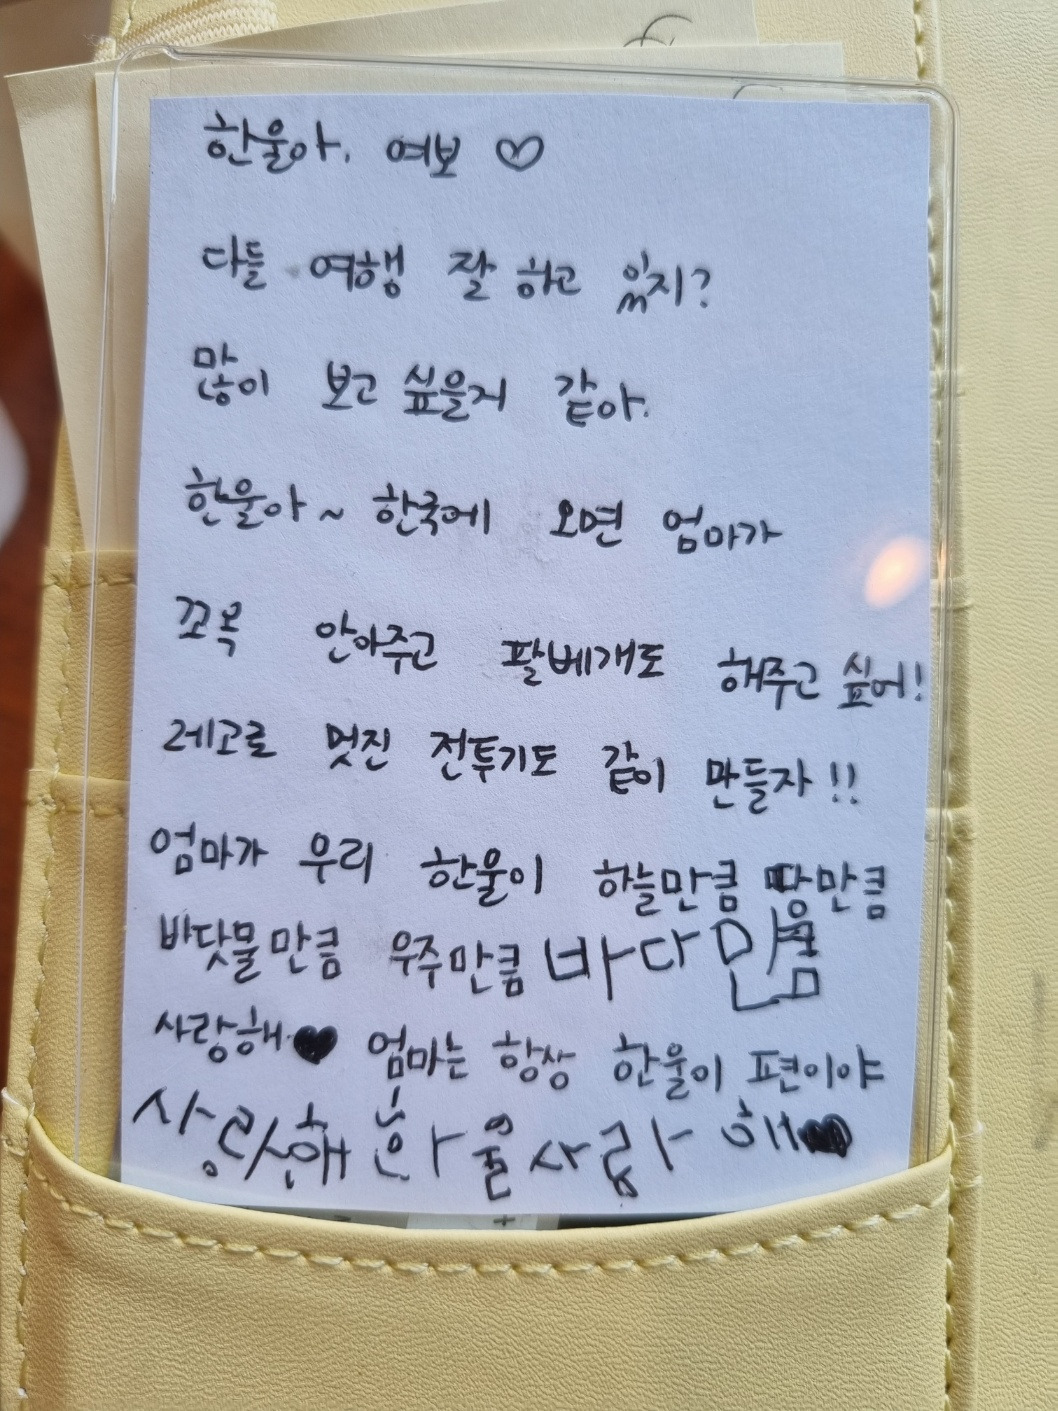 한울아, 여보 ♡
다들 여행 잘 하고 있지?
많이 보고 싶을거 같아.
한울아~ 한국에 오면 엄마가
꼬옥 안아주고 팔베개도 해주고 싶어!
레고로 멋진 전투기도 같이 만들자!!
엄마가 우리 한울이 하늘만큼 땅만큼
바닷물만큼 우주만큼 바다만큼
사랑해♥ 엄마는 항상 한울이 편이야
사랑해 한울 사랑해♥